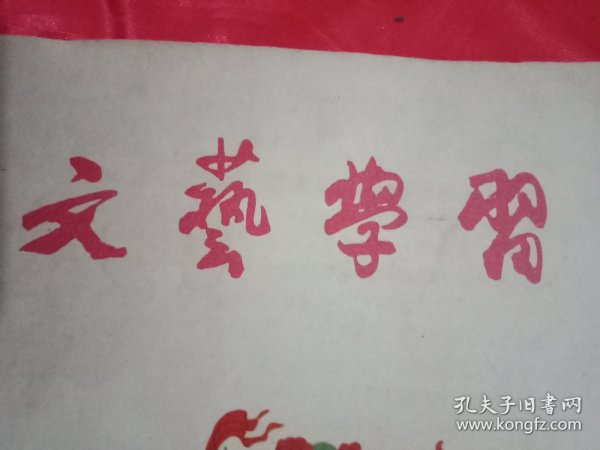 文藝學習
孔夫子旧书网
www.kongfz.com